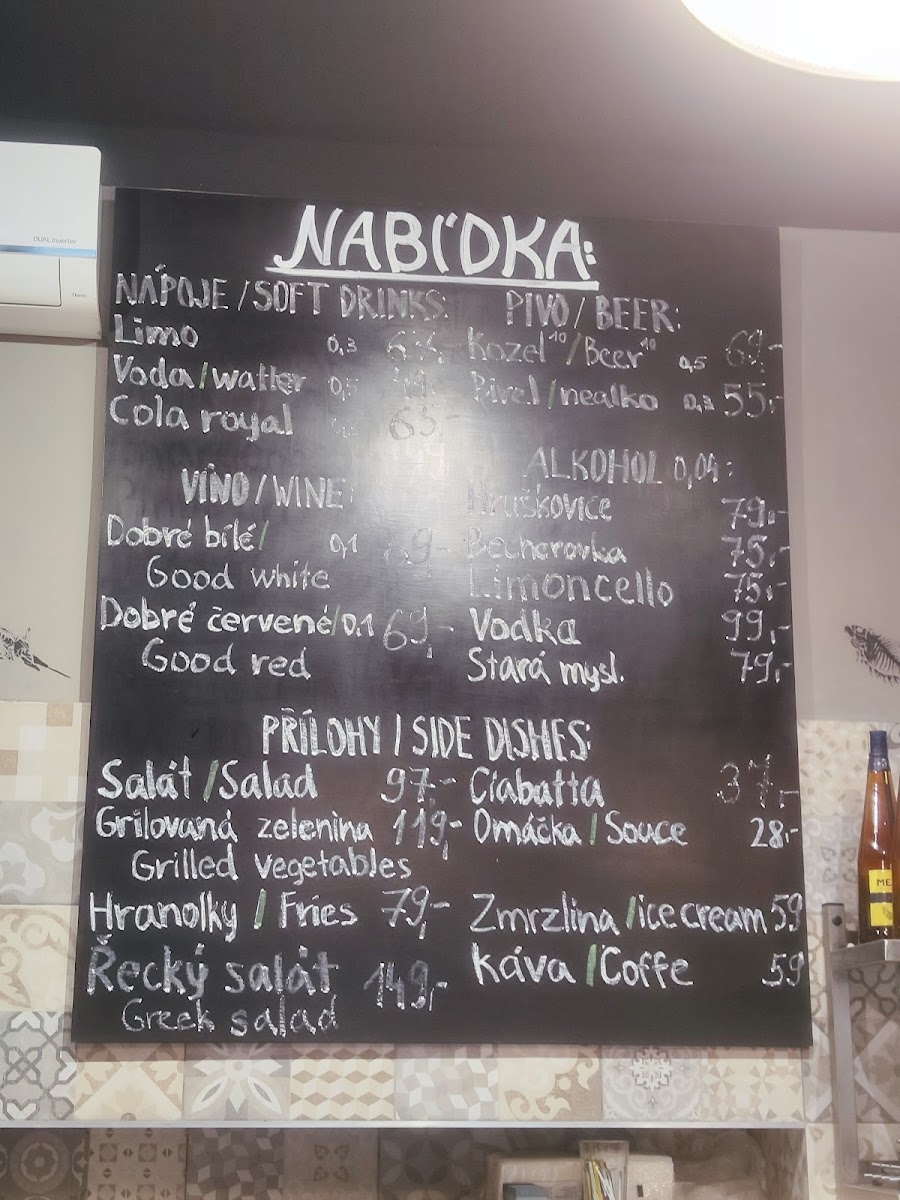 DUAL Inverter
NABÍDKA:
NÁPOJE / SOFT DRINKS:
Limo 0,3
Voda / watter
Cola royal 65,-
VÍNO / WINE
Dobré bílé /
0,1
Good white
Dobré červené / 0.1 69,-
Good red
PIVO / BEER:
Kozel 10 / Beer 10 0,5 69,-
Birel / nealko 0,3 55,-
ALKOHOL 0,04:
Hruškovice 79,-
Becherovka 75,-
Limoncello 75,-
Vodka 99,-
Stará mysl. 79,-
PŘÍLOHY / SIDE DISHES:
Salát / Salad 97,-
Grilovaná zelenina 119,-
Grilled vegetables
Hranolky / Fries 79,-
Řecký salát 149,-
Greek salad
Ciabatta 37,-
Omáčka / Souce 28,-
Zmrzlina / ice cream 59
Káva / Coffe 59